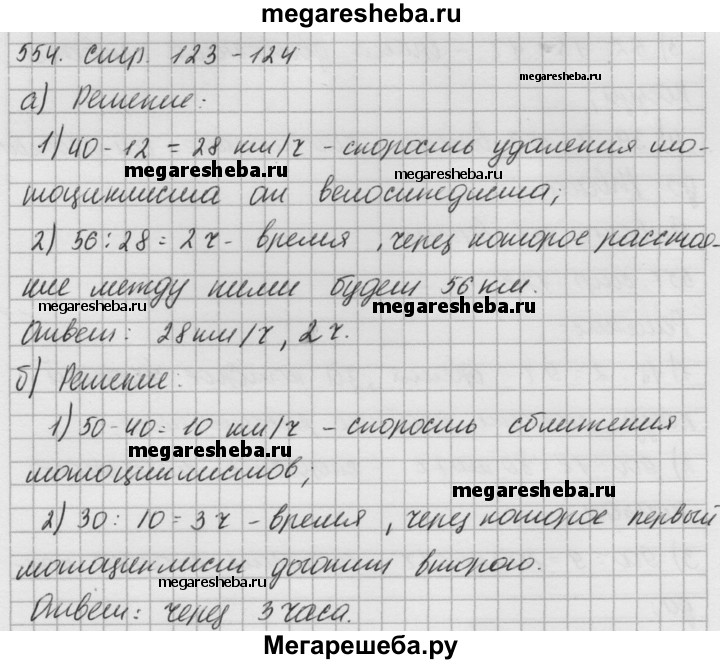 megaresheba.ru
554. стр. 123-124
megaresheba.ru
а) Решение:
1) 40-12 = 28 км/ч - скорость удаления мо-
megaresheba.ru megaresheba.ru
тоциклиста от велосипедиста;
2) 56:28 = 2 ч - время, через которое расстоя-
ние между ними будет 56 км.
megaresheba.ru megaresheba.ru
Ответ: 28 км/ч, 2 ч.
б) Решение:
1) 50-40 = 10 км/ч - скорость сближения
megaresheba.ru
мотоциклистов;
megaresheba.ru
2) 30 : 10 = 3 ч - время, через которое первый
мотоциклист догонит второго.
megaresheba.ru
Ответ: через 3 часа.
Мегарешеба.ру